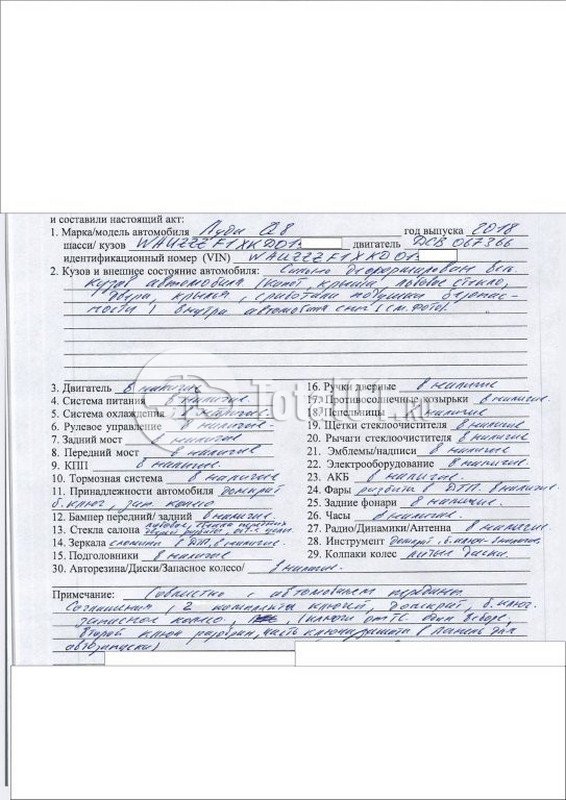 и составили настоящий акт:
1. Марка/модель автомобиля Ауди Q8 год выпуска 2018
шасси/ кузов WAUZZZF1XKD01 двигатель DCB 067366
идентификационный номер (VIN) WAUZZZF1XKD01
2. Кузов и внешнее состояние автомобиля: Сильно деформирован весь
кузов автомобиля (капот, крыша, лобовое стекло,
двери, крылья, сработали подушки безопас-
ности, внутри автомобиля снег (см. фото).
3. Двигатель в наличие
4. Система питания в наличие.
5. Система охлаждения в наличие.
6. Рулевое управление в наличие.
7. Задний мост в наличие
8. Передний мост в наличие.
9. КПП в наличие.
10. Тормозная система в наличие
11. Принадлежности автомобиля домкрат
б. ключ, зап. колесо
12. Бампер передний/ задний в наличие.
13. Стекла салона лобовое,
14. Зеркала в ДТП, в наличие.
15. Подголовники в наличие
30. Авторезина/Диски/Запасное колесо/ в наличие.
16. Ручки дверные в наличие
17. Противосолнечные козырьки в наличие
18. Пепельницы в наличие
19. Щетки стеклоочистителя в наличие
20. Рычаги стеклоочистителя в наличие
21. Эмблемы/надписи в наличие.
22. Электрооборудование в наличие.
23. АКБ в наличие.
24. Фары разбиты ДТП. в наличие.
25. Задние фонари в наличие.
26. Часы в наличие.
27. Радио/Динамики/Антенна в наличие.
28. Инструмент домкрат, б. ключ
29. Колпаки колес литые диски.
Примечание: Совместно с автомобилем переданы
Соглашения, 2 комплекта ключей, домкрат, б. ключ.
запасное колесо, (ключи от ТС один в сборе,
второй ключ разобран, часть ключа зашита в панель для
автозапуска)
TotalOt.ru